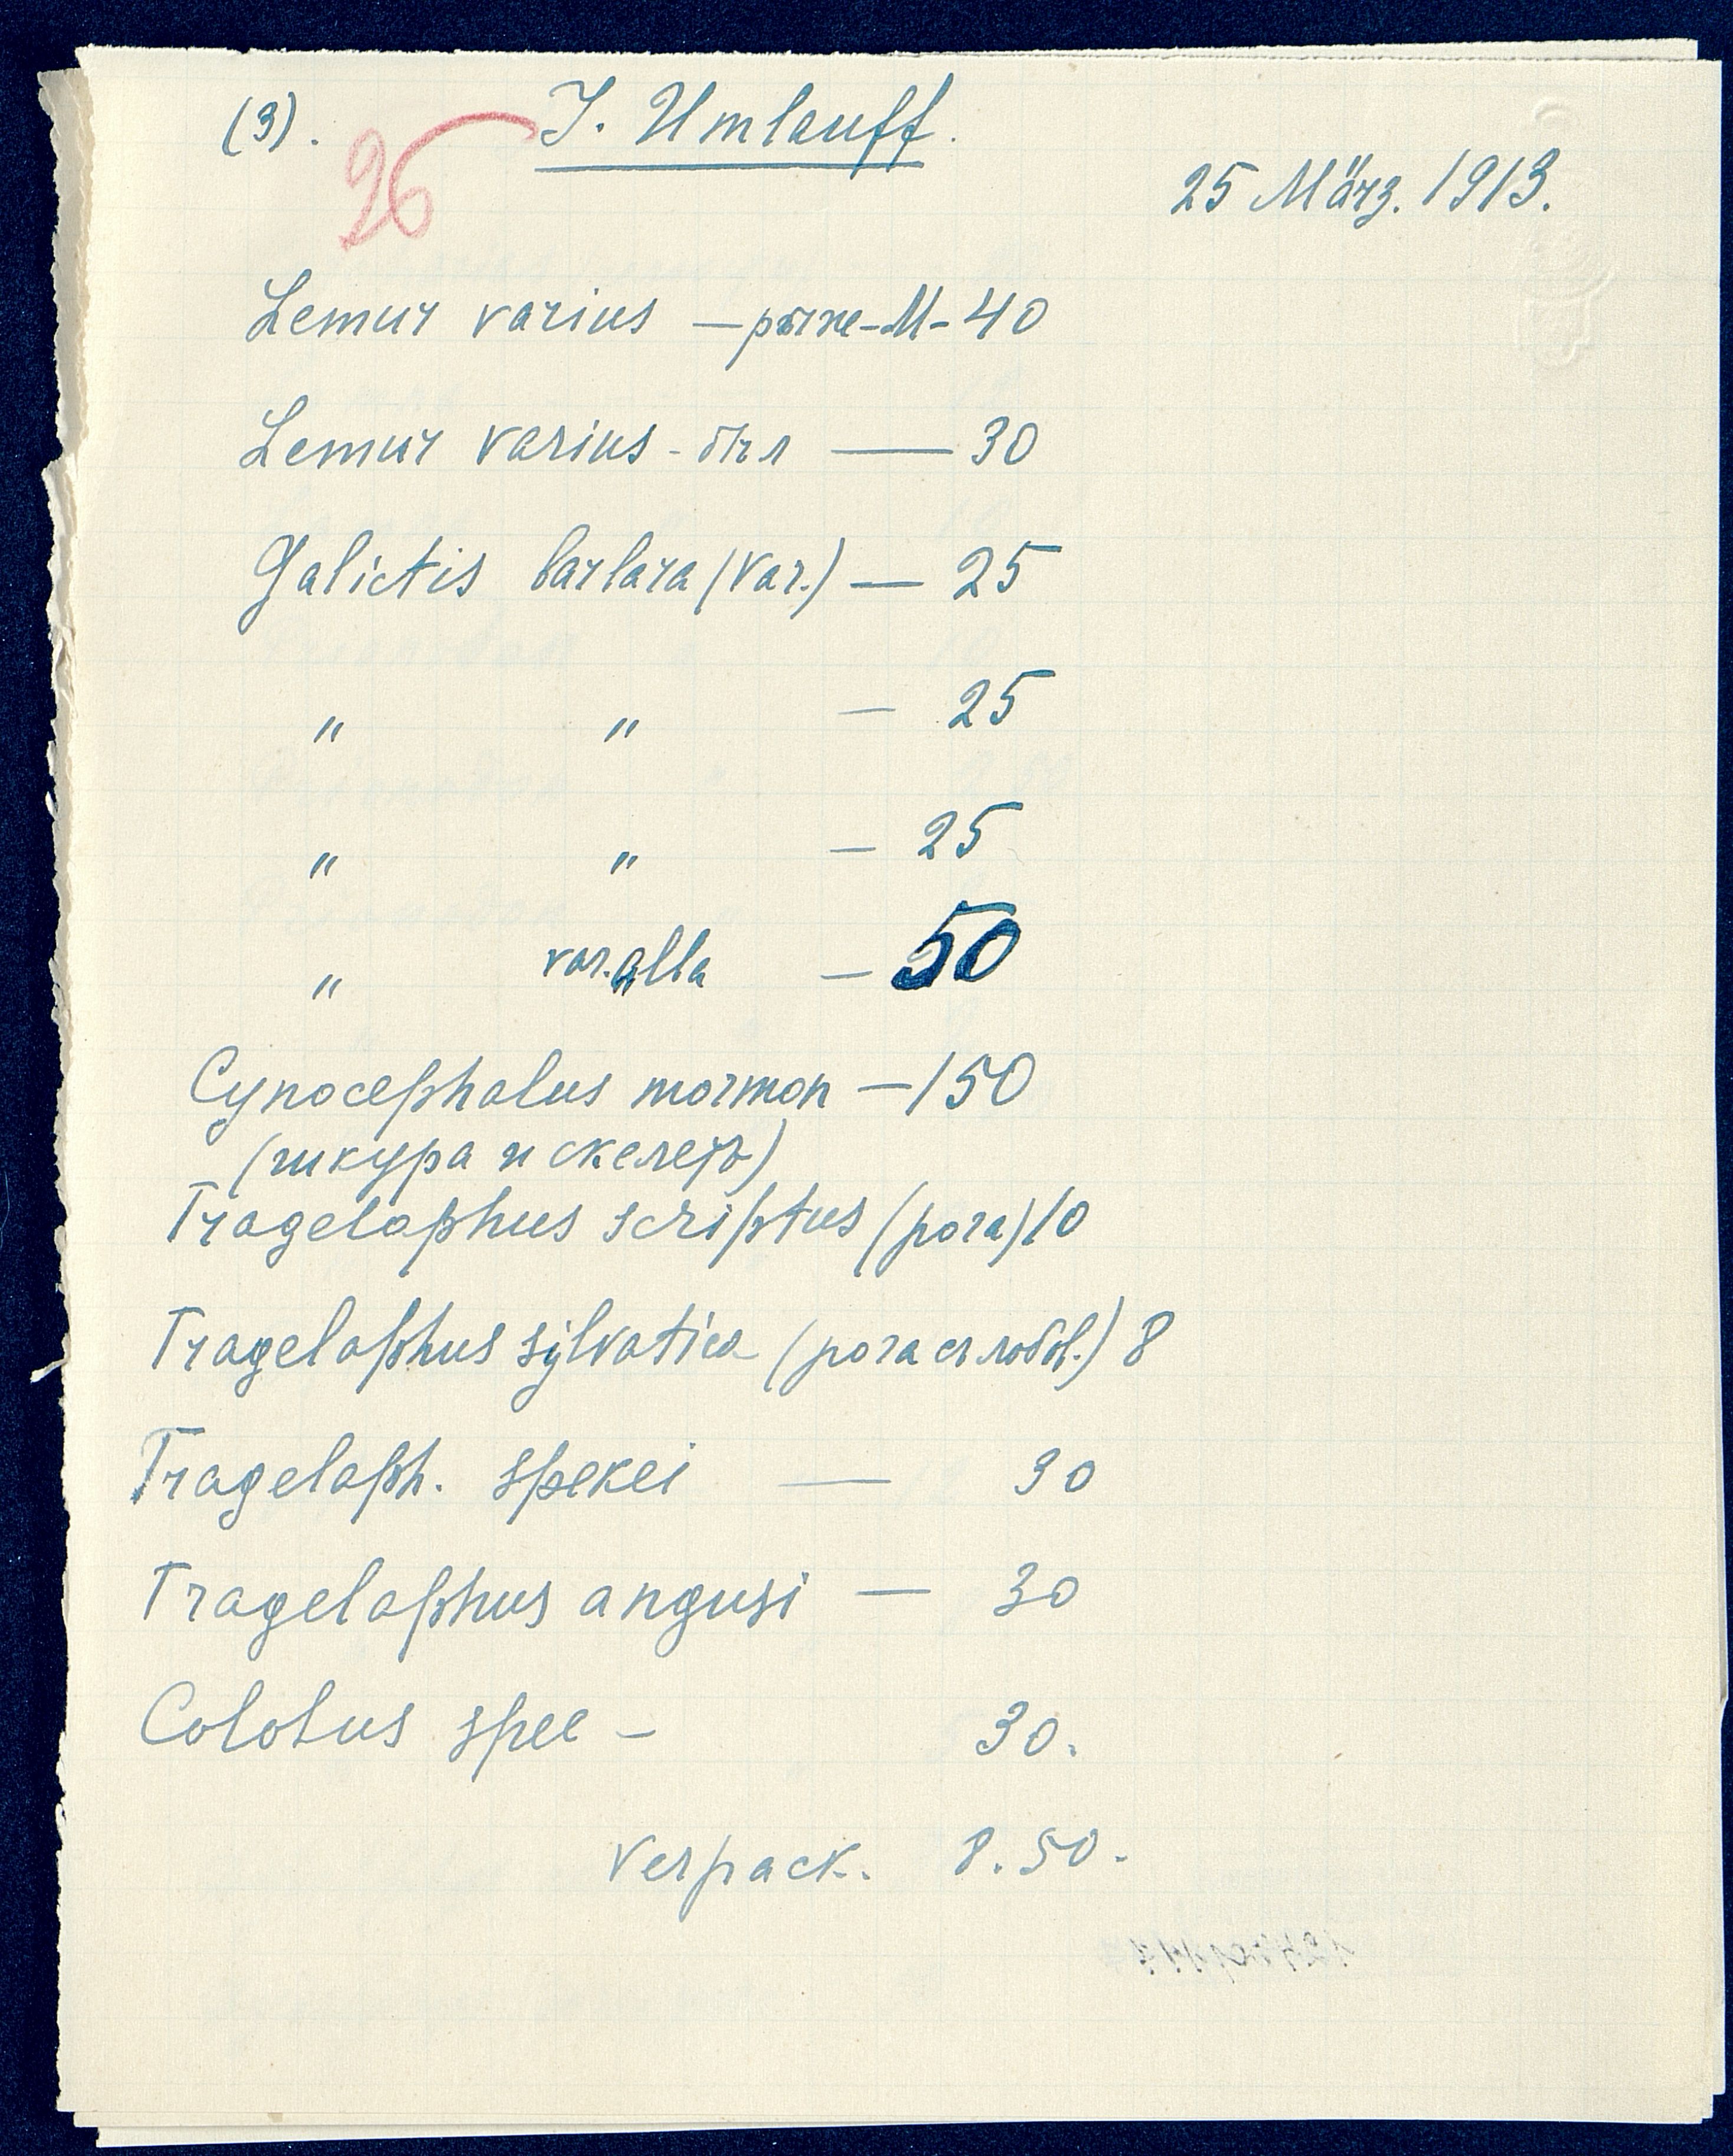 (3). J. Umlauff.
26
25 März. 1913.
Lemur varius — рыже-М- 40
Lemur varius - бѣл — 30
Galictis barbara (var.) — 25
" " — 25
" " — 25
" var. alba — 50
Cynocephalus mormon — 150
(шкура и скелетъ)
Tragelaphus scriptus (рога) 10
Tragelaphus sylvatica (рога съ лобов.) 8
Tragelaph. spekei — 30
Tragelaphus angusi — 30
Colobus spee - 30.
Verpack. 8.50.